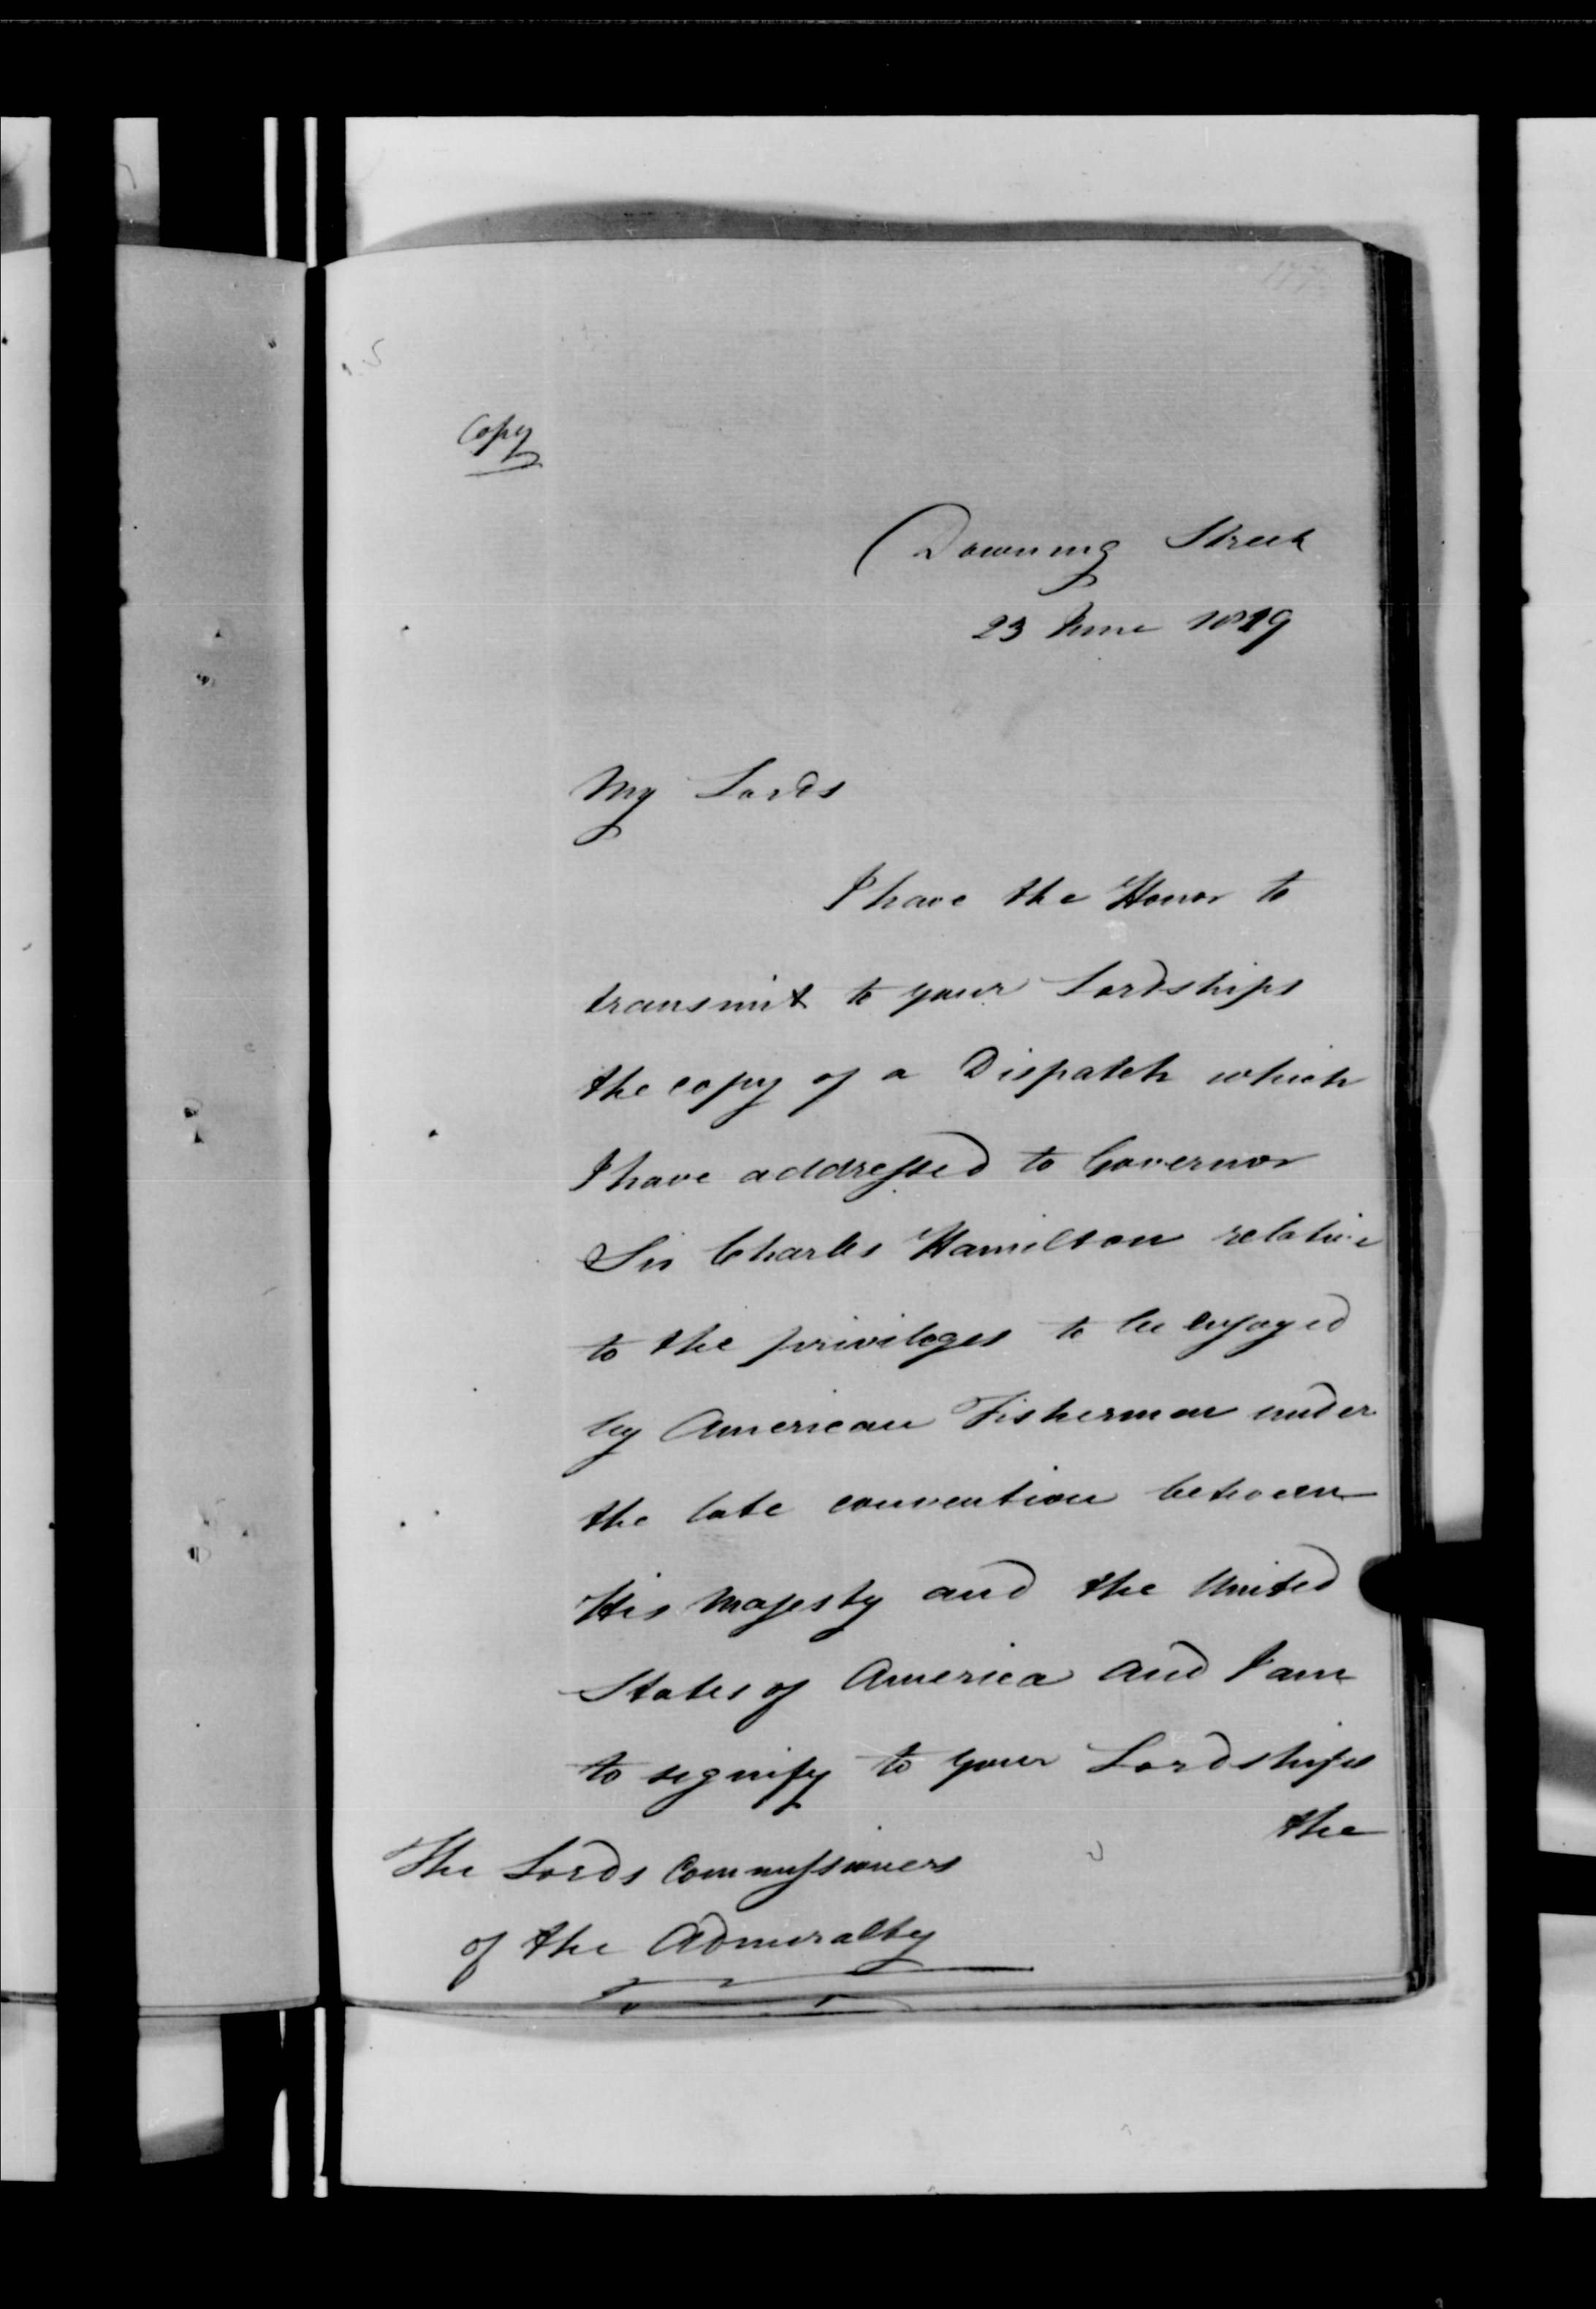 Copy
Downing Street
23 June 1819
My Lords
I have the Honor to
transmit to your Lordships
the copy of a Dispatch which
I have addressed to Governor
Sir Charles Hamilton relative
to the privileges to be enjoyed
by American Fishermen under
the late convention between
His Majesty and the United
States of America and I am
to signify to your Lordships
the
The Lords Commissioners
of the Admiralty